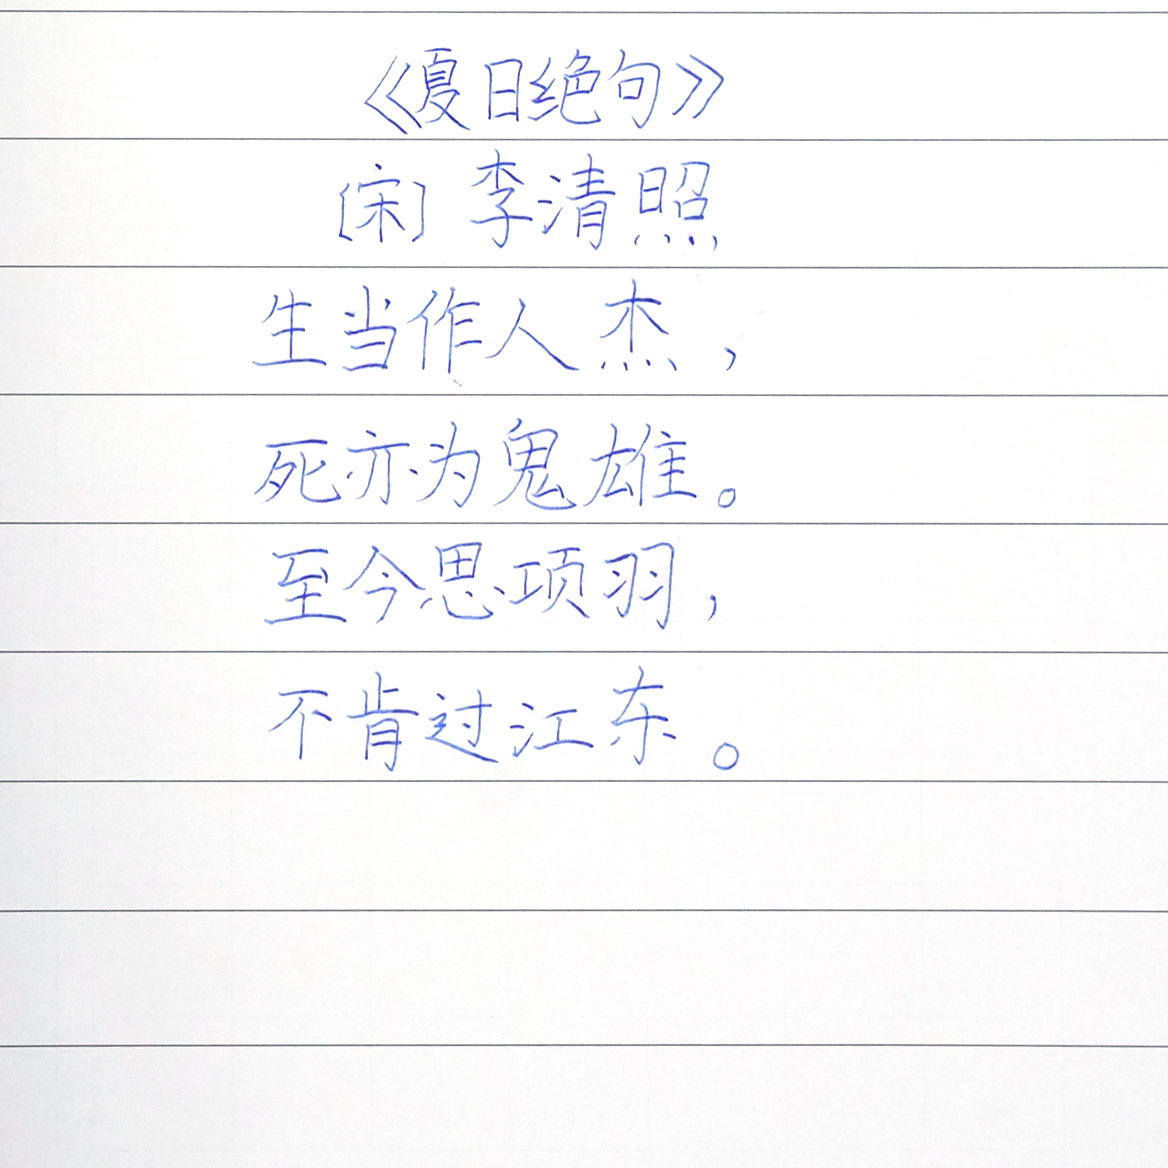 《夏日绝句》
[宋] 李清照
生当作人杰，
死亦为鬼雄。
至今思项羽，
不肯过江东。